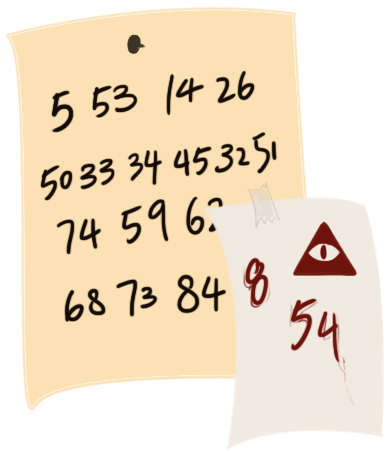 5 53 14 26
50 33 34 45 32 51
74 59
68 73 84
8
54